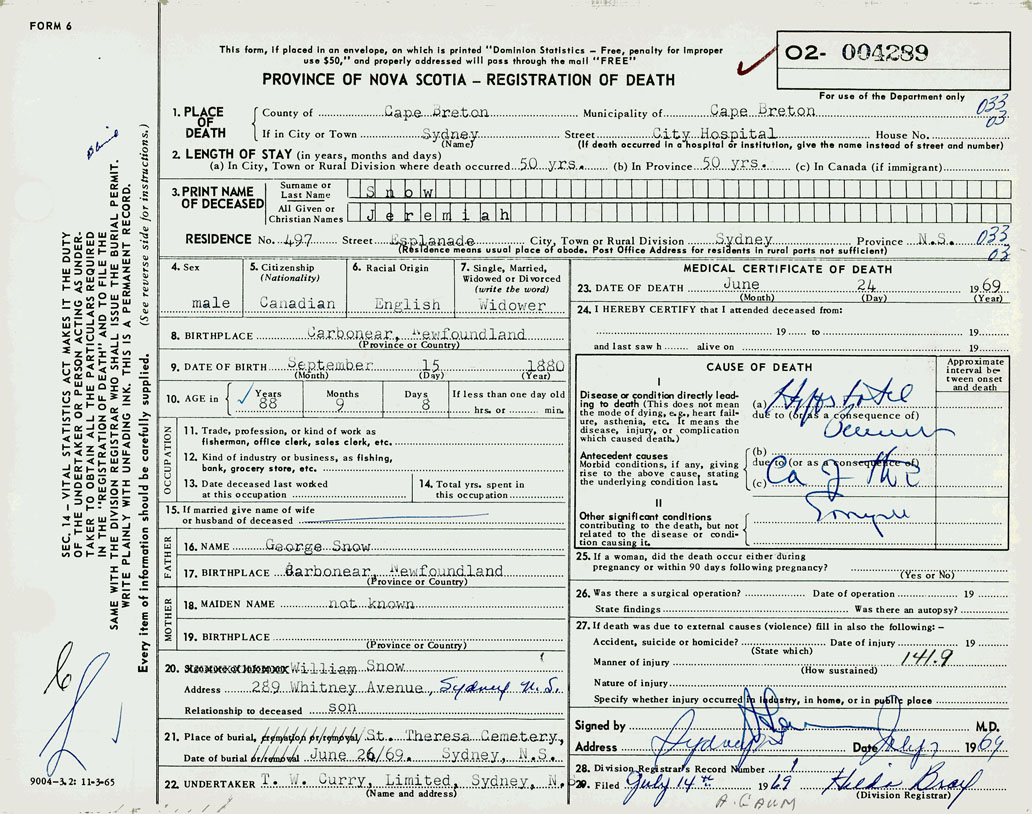 FORM 6
This form, if placed in an envelope, on which is printed "Dominion Statistics – Free, penalty for improper
use $50," and properly addressed will pass through the mail "FREE"
O2- 004289
PROVINCE OF NOVA SCOTIA – REGISTRATION OF DEATH
For use of the Department only
1. PLACE OF DEATH County of Cape Breton Municipality of Cape Breton 033
03
If in City or Town Sydney Street City Hospital House No.
(Name) (If death occurred in a hospital or institution, give the name instead of street and number)
2. LENGTH OF STAY (in years, months and days)
(a) In City, Town or Rural Division where death occurred 50 yrs. (b) In Province 50 yrs. (c) In Canada (if immigrant)
3. PRINT NAME OF DECEASED Surname or Last Name Snow
All Given or Christian Names Jeremiah
RESIDENCE No. 497 Street Esplanade City, Town or Rural Division Sydney Province N.S. 033
03
(Residence means usual place of abode. Post Office Address for residents in rural parts not sufficient)
4. Sex male
5. Citizenship (Nationality) Canadian
6. Racial Origin English
7. Single, Married, Widowed or Divorced (write the word) Widower
8. BIRTHPLACE Carbonear, Newfoundland
(Province or Country)
9. DATE OF BIRTH September 15 1880
(Month) (Day) (Year)
10. AGE in Years 88 Months 9 Days 8 If less than one day old hrs. or min.
OCCUPATION
11. Trade, profession, or kind of work as
fisherman, office clerk, sales clerk, etc.
12. Kind of industry or business, as fishing,
bank, grocery store, etc.
13. Date deceased last worked at this occupation
14. Total yrs. spent in this occupation
15. If married give name of wife
or husband of deceased
FATHER
16. NAME George Snow
17. BIRTHPLACE Carbonear, Newfoundland
(Province or Country)
MOTHER
18. MAIDEN NAME not known
19. BIRTHPLACE
(Province or Country)
20. William Snow
Address 289 Whitney Avenue, Sydney N.S.
Relationship to deceased son
21. Place of burial, cremation or removal St. Theresa Cemetery,
Date of burial or removal June 26/69. Sydney, N.S.
22. UNDERTAKER T. W. Curry, Limited, Sydney, N.S.
(Name and address)
MEDICAL CERTIFICATE OF DEATH
23. DATE OF DEATH June 24 1969
(Month) (Day) (Year)
24. I HEREBY CERTIFY that I attended deceased from:
19 to 19
and last saw h alive on 19
CAUSE OF DEATH
Approximate interval between onset and death
I
Disease or condition directly lead-
ing to death (This does not mean
the mode of dying, e.g., heart fail-
ure, asthenia, etc. It means the
disease, injury, or complication
which caused death.)
(a)
due to (or as a consequence of)
Antecedent causes
Morbid conditions, if any, giving
rise to the above cause, stating
the underlying condition last.
(b)
due to (or as a consequence of)
(c) Ca of the
II
Other significant conditions
contributing to the death, but not
related to the disease or condi-
tion causing it.
25. If a woman, did the death occur either during
pregnancy or within 90 days following pregnancy?
(Yes or No)
26. Was there a surgical operation? Date of operation 19
State findings Was there an autopsy?
27. If death was due to external causes (violence) fill in also the following: –
Accident, suicide or homicide? Date of injury 19
(State which)
Manner of injury 141.9
(How sustained)
Nature of injury
Specify whether injury occurred in Industry, in home, or in public place
Signed by M.D.
Address Sydney Date July 7 1969
28. Division Registrar's Record Number
29. Filed July 14th 1969 Hilda
(Division Registrar)
A. GAUM
SEC. 14 – VITAL STATISTICS ACT MAKES IT THE DUTY
OF THE UNDERTAKER OR PERSON ACTING AS UNDER-
TAKER TO OBTAIN ALL THE PARTICULARS REQUIRED
IN THE "REGISTRATION OF DEATH" AND TO FILE THE
SAME WITH THE DIVISION REGISTRAR WHO SHALL ISSUE THE BURIAL PERMIT.
WRITE PLAINLY WITH UNFADING INK. THIS IS A PERMANENT RECORD.
Every item of information should be carefully supplied. (See reverse side for instructions.)
9004-3.2: 11-3-65